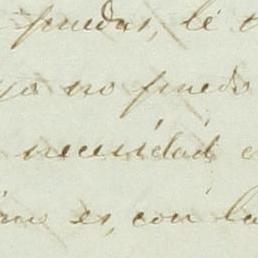 puedas, le
yo no puedo
necesidad
es, con la